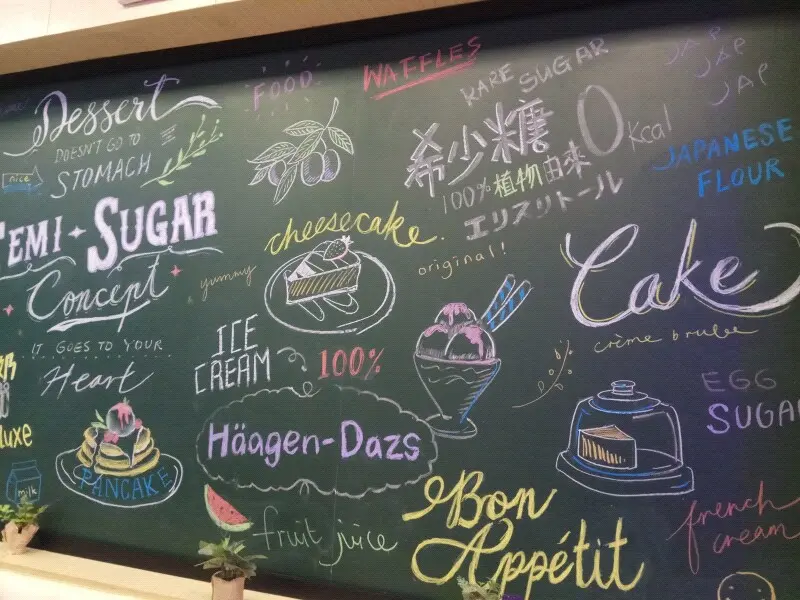 Dessert
DOESN'T GO TO
STOMACH
nice
FOOD
WAFFLES
RARE SUGAR
希少糖 0kcal
100%植物由来
エリスリトール
JAP
JAP
JAP
JAPANESE
FLOUR
EMI-SUGAR
Concept
IT GOES TO YOUR
Heart
cheesecake.
yummy
original!
Cake
crème brulee
ICE
CREAM
100%
Häagen-Dazs
EGG
SUGA
luxe
milk
PANCAKE
fruit juice
Bon
Appétit
french
cream